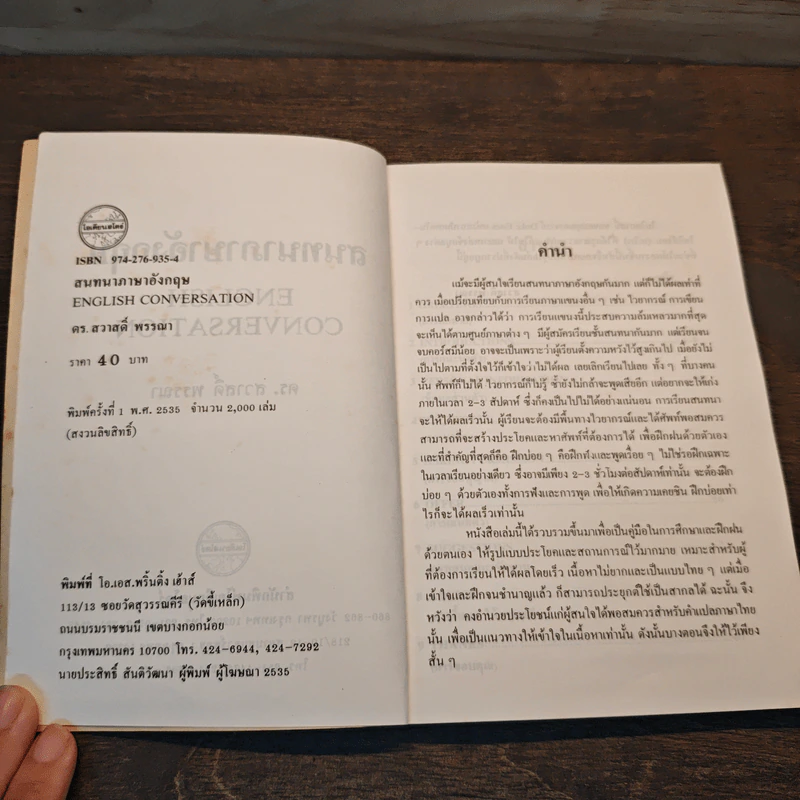 โอเดียนสโตร์
ISBN 974-276-935-4
สนทนาภาษาอังกฤษ
ENGLISH CONVERSATION
ดร. สวาสดิ์ พรรณา
ราคา 40 บาท
พิมพ์ครั้งที่ 1 พ.ศ. 2535 จำนวน 2,000 เล่ม
(สงวนลิขสิทธิ์)
พิมพ์ที่ โอ.เอส.พริ้นติ้ง เฮ้าส์
113/13 ซอยวัดสุวรรณคีรี (วัดขี้เหล็ก)
ถนนบรมราชชนนี เขตบางกอกน้อย
กรุงเทพมหานคร 10700 โทร. 424-6944, 424-7292
นายประสิทธิ์ สันติวัฒนา ผู้พิมพ์ ผู้โฆษณา 2535
คำนำ
แม้จะมีผู้สนใจเรียนสนทนาภาษาอังกฤษกันมาก แต่ก็ไม่ได้ผลเท่าที่
ควร เมื่อเปรียบเทียบกับการเรียนภาษาแขนงอื่น ๆ เช่น ไวยากรณ์ การเขียน
การแปล อาจกล่าวได้ว่า การเรียนแขนงนี้ประสบความล้มเหลวมากที่สุด
จะเห็นได้ตามศูนย์ภาษาต่าง ๆ มีผู้สมัครเรียนชั้นสนทนากันมาก แต่เรียนจน
จบคอร์สมีน้อย อาจจะเป็นเพราะว่าผู้เรียนตั้งความหวังไว้สูงเกินไป เมื่อยังไม่
เป็นไปตามที่ตั้งใจไว้ก็เข้าใจว่าไม่ได้ผล เลยเลิกเรียนไปเลย ทั้ง ๆ ที่บางคน
นั้น ศัพท์ก็ไม่ได้ ไวยากรณ์ก็ไม่รู้ ซ้ำยังไม่กล้าจะพูดเสียอีก แต่อยากจะให้เก่ง
ภายในเวลา 2-3 สัปดาห์ ซึ่งก็คงเป็นไปไม่ได้อย่างแน่นอน การเรียนสนทนา
จะให้ได้ผลเร็วนั้น ผู้เรียนจะต้องมีพื้นทางไวยากรณ์และได้ศัพท์พอสมควร
สามารถที่จะสร้างประโยคและหาศัพท์ที่ต้องการได้ เพื่อฝึกฝนด้วยตัวเอง
และที่สำคัญที่สุดก็คือ ฝึกบ่อย ๆ คือฝึกฟังและพูดเรื่อย ๆ ไม่ใช่รอฝึกเฉพาะ
ในเวลาเรียนอย่างเดียว ซึ่งอาจมีเพียง 2-3 ชั่วโมงต่อสัปดาห์เท่านั้น จะต้องฝึก
บ่อย ๆ ด้วยตัวเองทั้งการฟังและการพูด เพื่อให้เกิดความเคยชิน ฝึกบ่อยเท่า
ไรก็จะได้ผลเร็วเท่านั้น
หนังสือเล่มนี้ได้รวบรวมขึ้นมาเพื่อเป็นคู่มือในการศึกษาและฝึกฝน
ด้วยตนเอง ให้รูปแบบประโยคและสถานการณ์ไว้มากมาย เหมาะสำหรับผู้
ที่ต้องการเรียนให้ได้ผลโดยเร็ว เนื้อหาไม่ยากและเป็นแบบไทย ๆ แต่เมื่อ
เข้าใจและฝึกจนชำนาญแล้ว ก็สามารถประยุกต์ใช้เป็นสากลได้ ฉะนั้น จึง
หวังว่า คงอำนวยประโยชน์แก่ผู้สนใจได้พอสมควรสำหรับคำแปลภาษาไทย
นั้น เพื่อเป็นแนวทางให้เข้าใจในเนื้อหาเท่านั้น ดังนั้นบางตอนจึงให้ไว้เพียง
สั้น ๆ